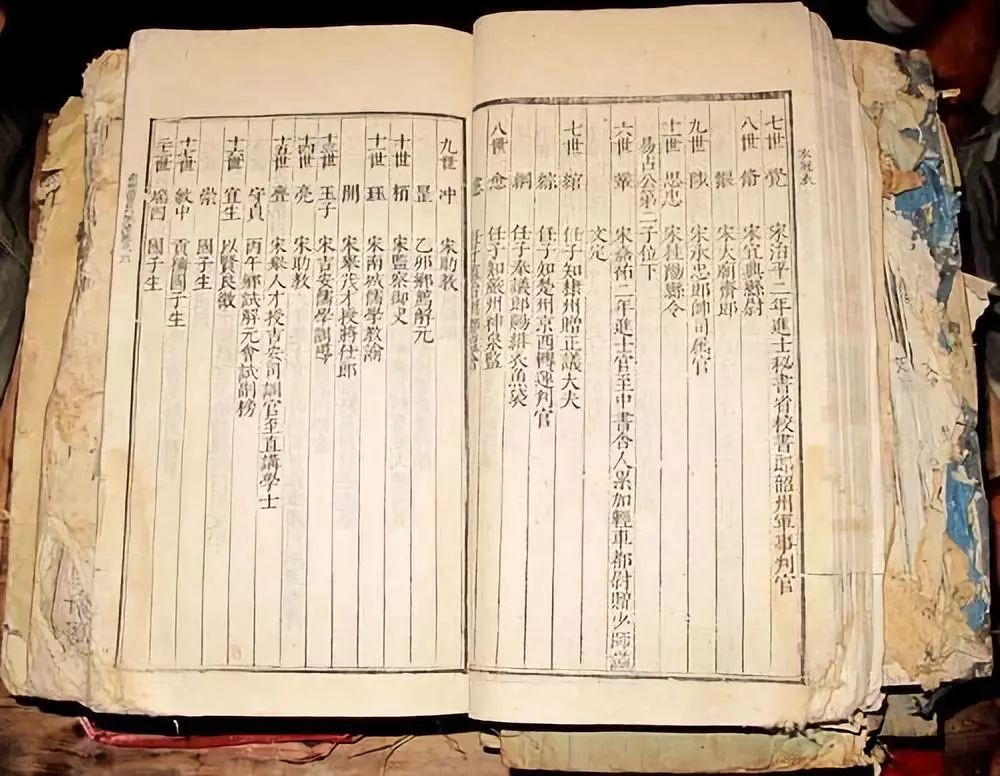 七世 覺 宋治平二年進士秘書省校書郎韶州軍事判官
八世 衛 宋宜興縣尉
宋太廟齋郎
九世 陟 宋永忠郎帥司係官
十一世 思忠 宋桂陽縣令
易占公第二子位下
六世 鞏 宋嘉祐二年進士官至中書舍人累加輕車都尉贈少師謚
文定
七世 綰 任子知隸州贈正議大夫
綜 任子知楚州京西轉運判官
綱 任子奉議郎賜緋衣魚袋
八世 悆 任子知嚴州神泉監
九世 冲 宋助教
乙卯鄉薦解元
十世 栢 宋監察御史
十一世 珏 宋南城儒學教諭
開 宋舉茂才授將仕郎
十三世 玉子 宋吉安儒學訓導
十四世 亮 宋助教
十五世 宋舉人才授吉安司訓官至直講學士
守貞 丙午鄉試解元會試副榜
十六世 宜生 以賢良徵
崇 國子生
十七世 敏中 國子生
二十世 國子生